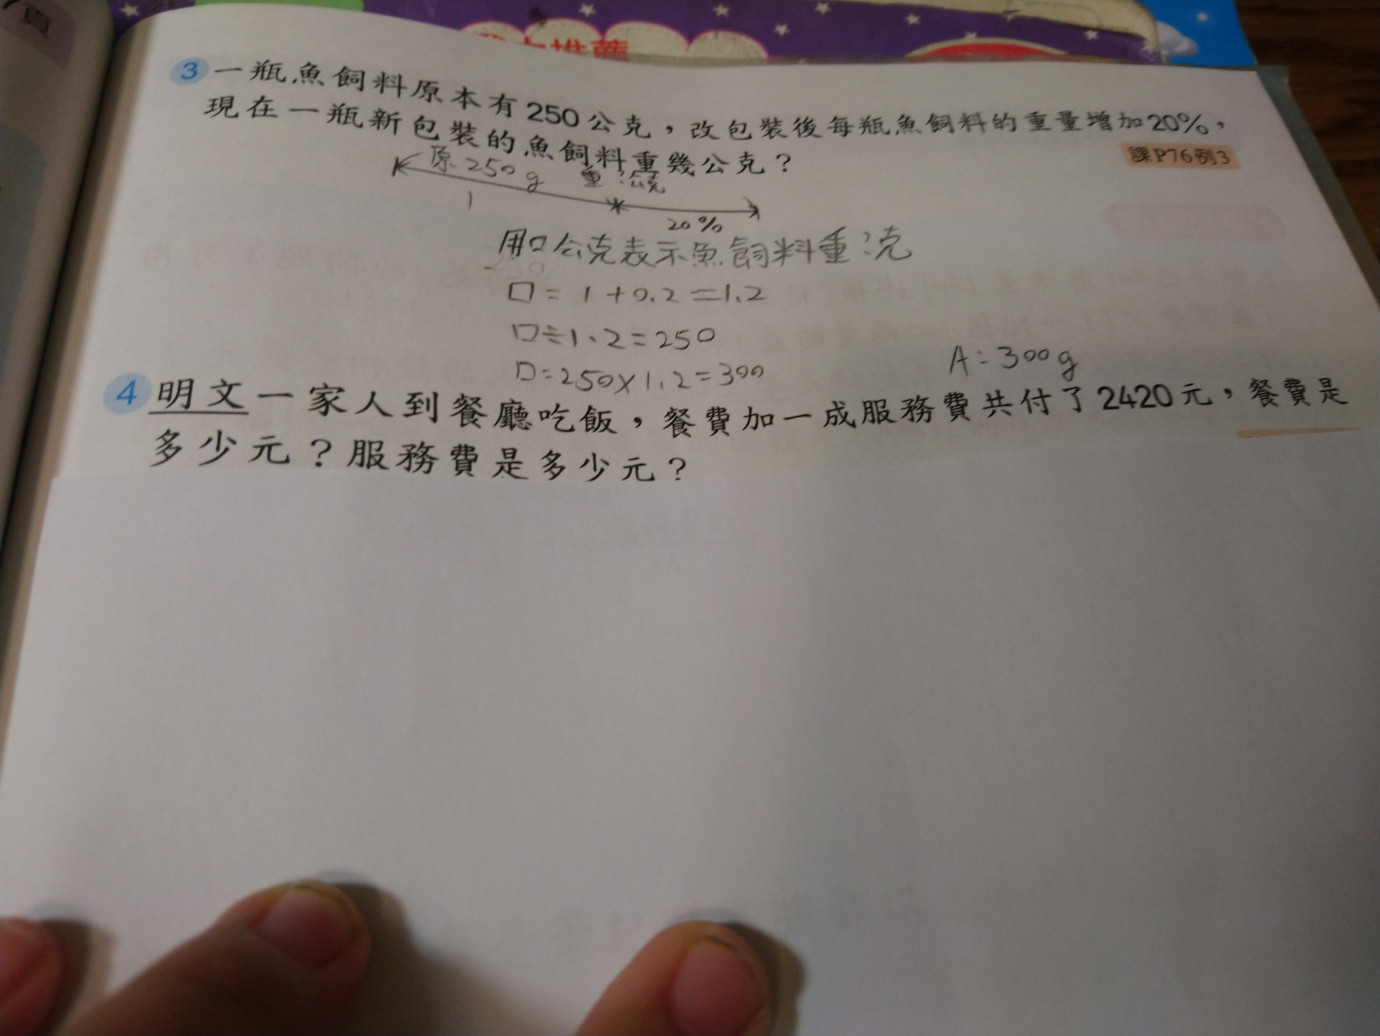 頁
推薦
3 一瓶魚飼料原本有250公克，改包裝後每瓶魚飼料的重量增加20%，
現在一瓶新包裝的魚飼料重幾公克？
課P76例3
原250g
1
20%
用口公克表示魚飼料重?克
口=1+0.2=1.2
口÷1.2=250
口=250×1.2=300
A:300g
4 明文一家人到餐廳吃飯，餐費加一成服務費共付了2420元，餐費是
多少元？服務費是多少元？